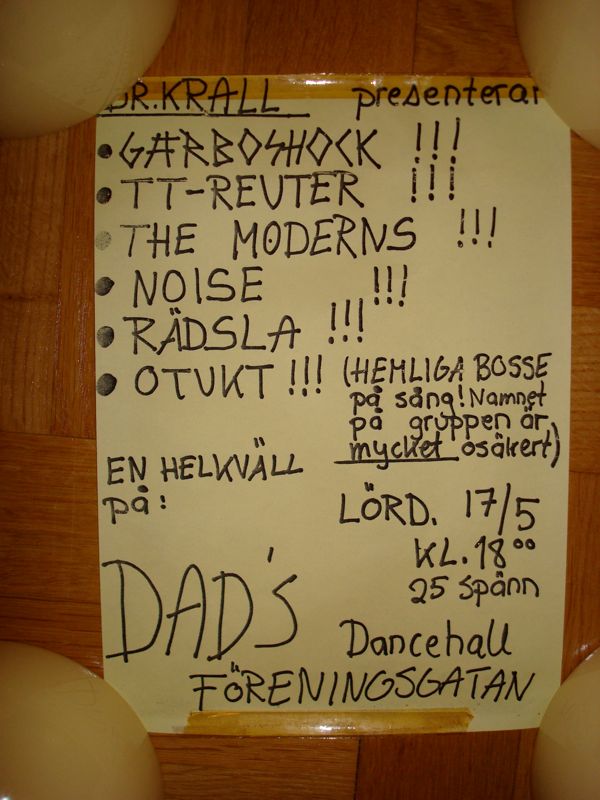 DR.KRALL presenterar
• GÄRBOSHOCK !!!
• TT-REUTER !!!
• THE MODERNS !!!
• NOISE !!!
• RÄDSLA !!!
• OTUKT !!! (HEMLIGA BOSSE
på sång! Namnet
på gruppen är
mycket osäkert)
EN HELKVÄLL
på:
LÖRD. 17/5
KL. 18⁰⁰
25 spänn
DAD'S
Dancehall
FÖRENINGSGATAN